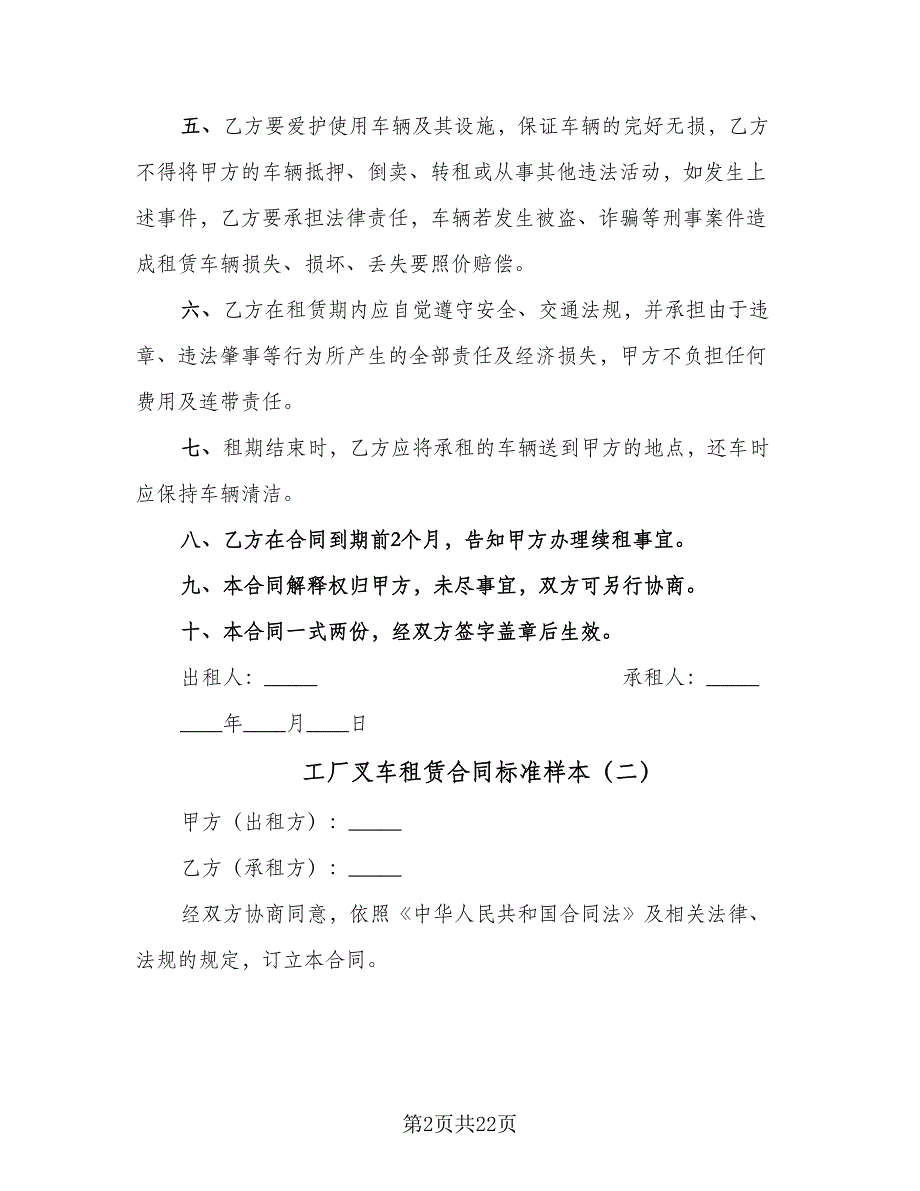 五、乙方要爱护使用车辆及其设施，保证车辆的完好无损，乙方
不得将甲方的车辆抵押、倒卖、转租或从事其他违法活动，如发生上
述事件，乙方要承担法律责任，车辆若发生被盗、诈骗等刑事案件造
成租赁车辆损失、损坏、丢失要照价赔偿。
六、乙方在租赁期内应自觉遵守安全、交通法规，并承担由于违
章、违法肇事等行为所产生的全部责任及经济损失，甲方不负担任何
费用及连带责任。
七、租期结束时，乙方应将承租的车辆送到甲方的地点，还车时
应保持车辆清洁。
八、乙方在合同到期前2个月，告知甲方办理续租事宜。
九、本合同解释权归甲方，未尽事宜，双方可另行协商。
十、本合同一式两份，经双方签字盖章后生效。
出租人：_____ 承租人：_____
____年____月____日
工厂叉车租赁合同标准样本（二）
甲方（出租方）：_____
乙方（承租方）：_____
经双方协商同意，依照《中华人民共和国合同法》及相关法律、
法规的规定，订立本合同。
第2页共22页